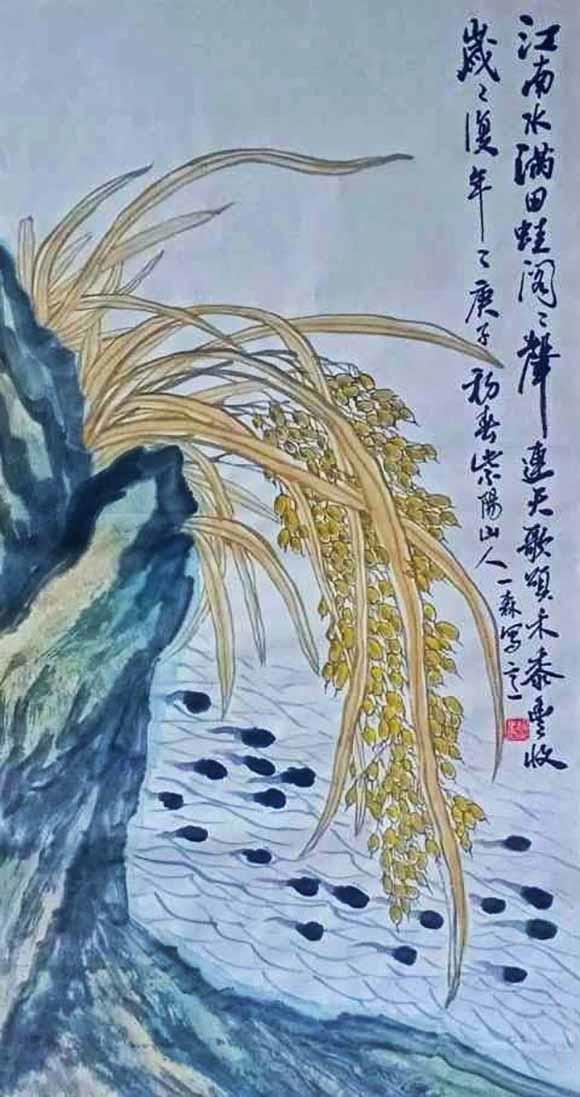 江南水满田蛙阁〻声连天歌颂禾黍丰收
岁〻复年〻庚子初春紫阳山人一森写之